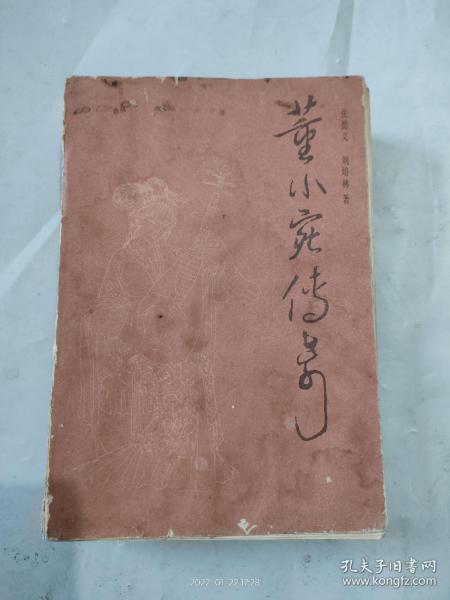 董小宛传奇
张德义 刘培林 著
2022-01-22 17:28
孔夫子旧书网
www.kongfz.com